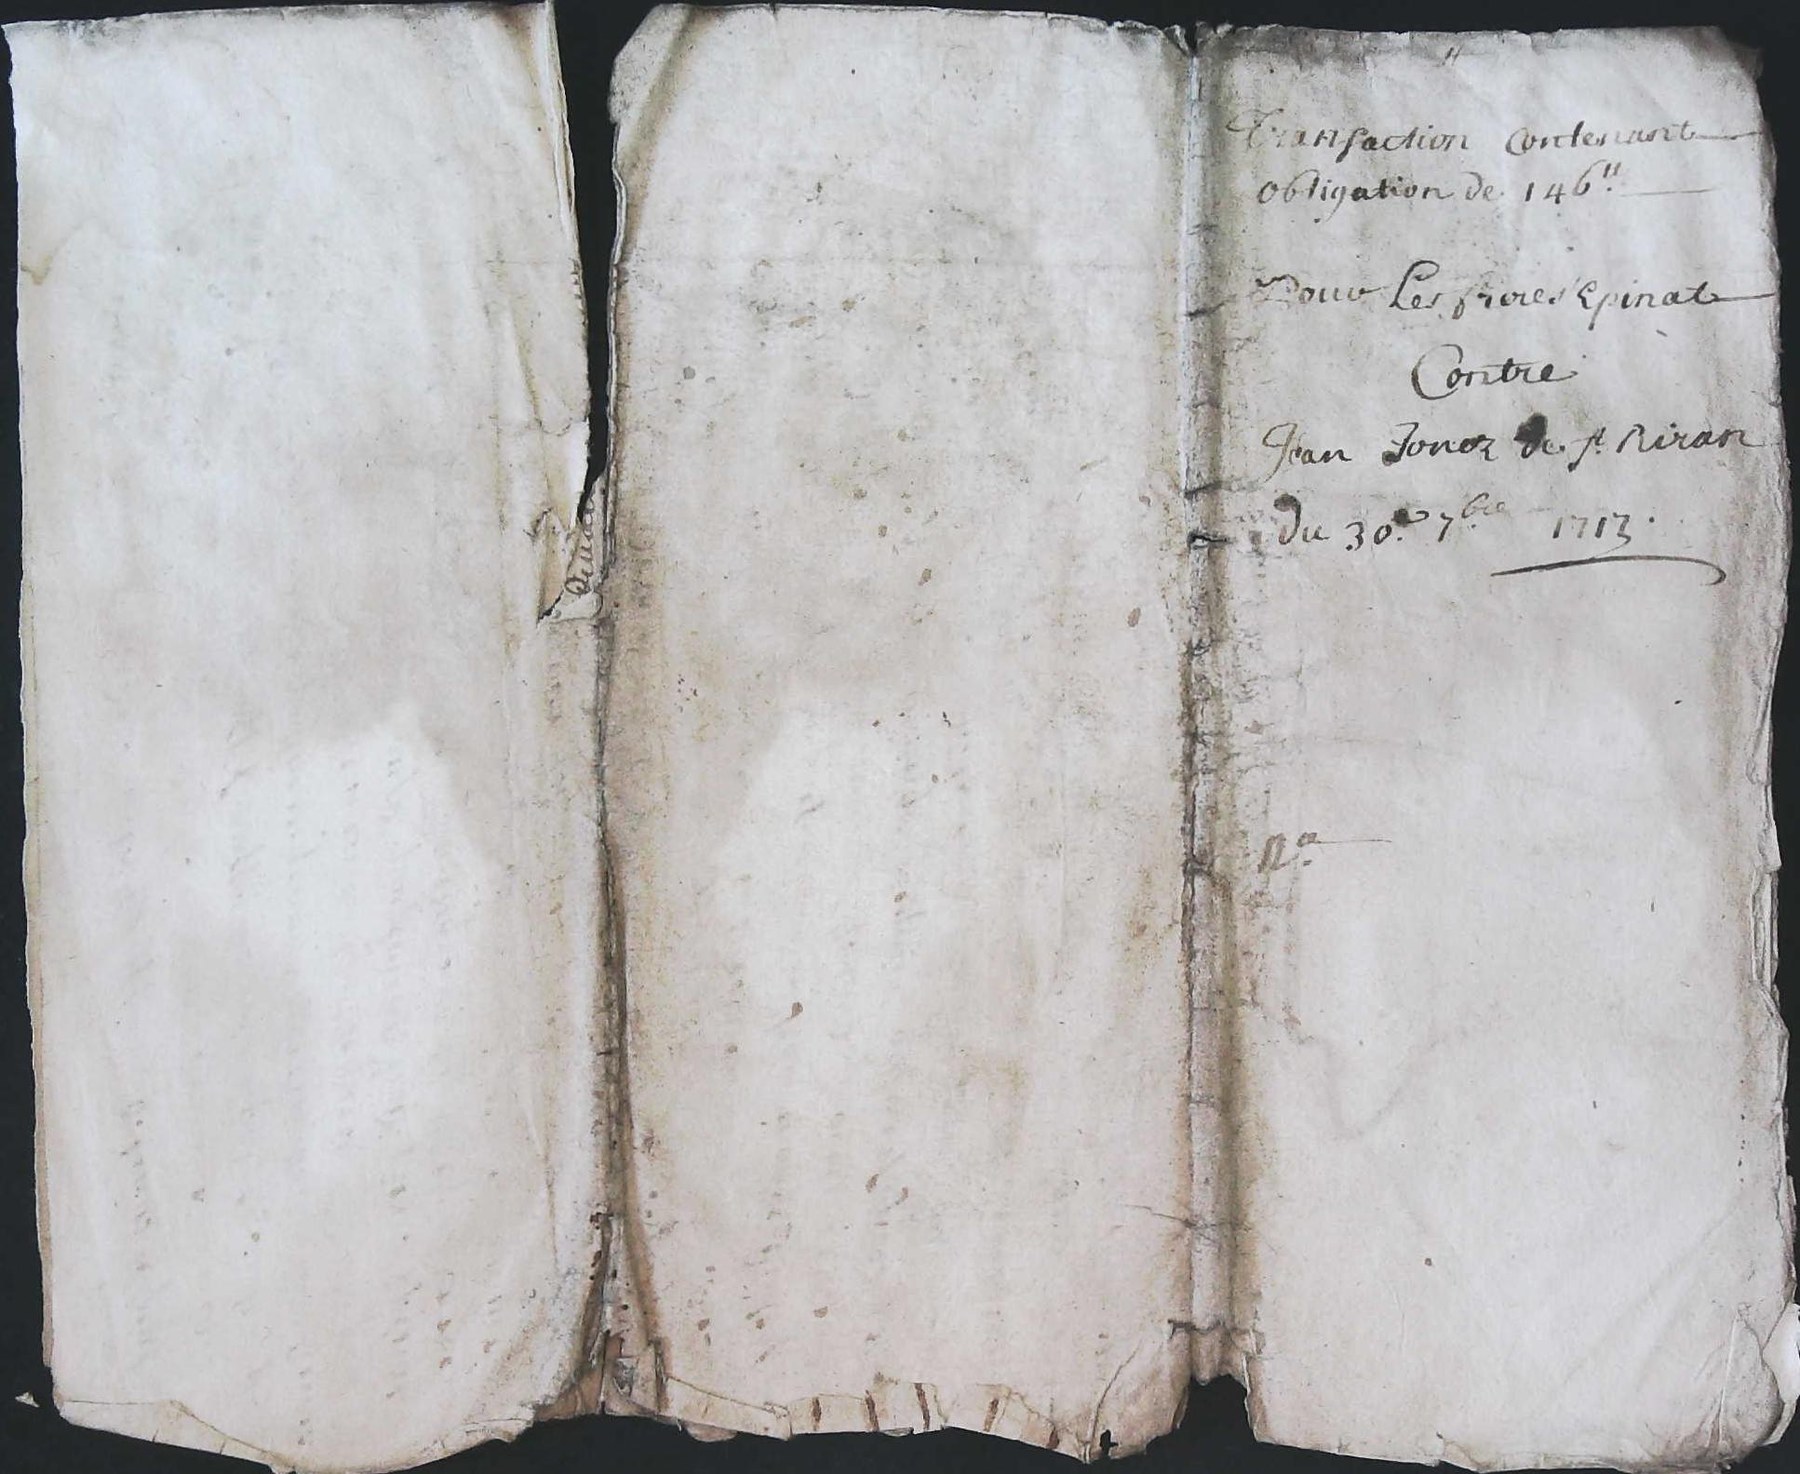 Transaction Contenant
obligation de 146ᵗᵗ
Pour Les freres Epinat
Contre
Jean Jonez de sᵗ Riran
du 30.ᵉ 7ᵇʳᵉ 1713.